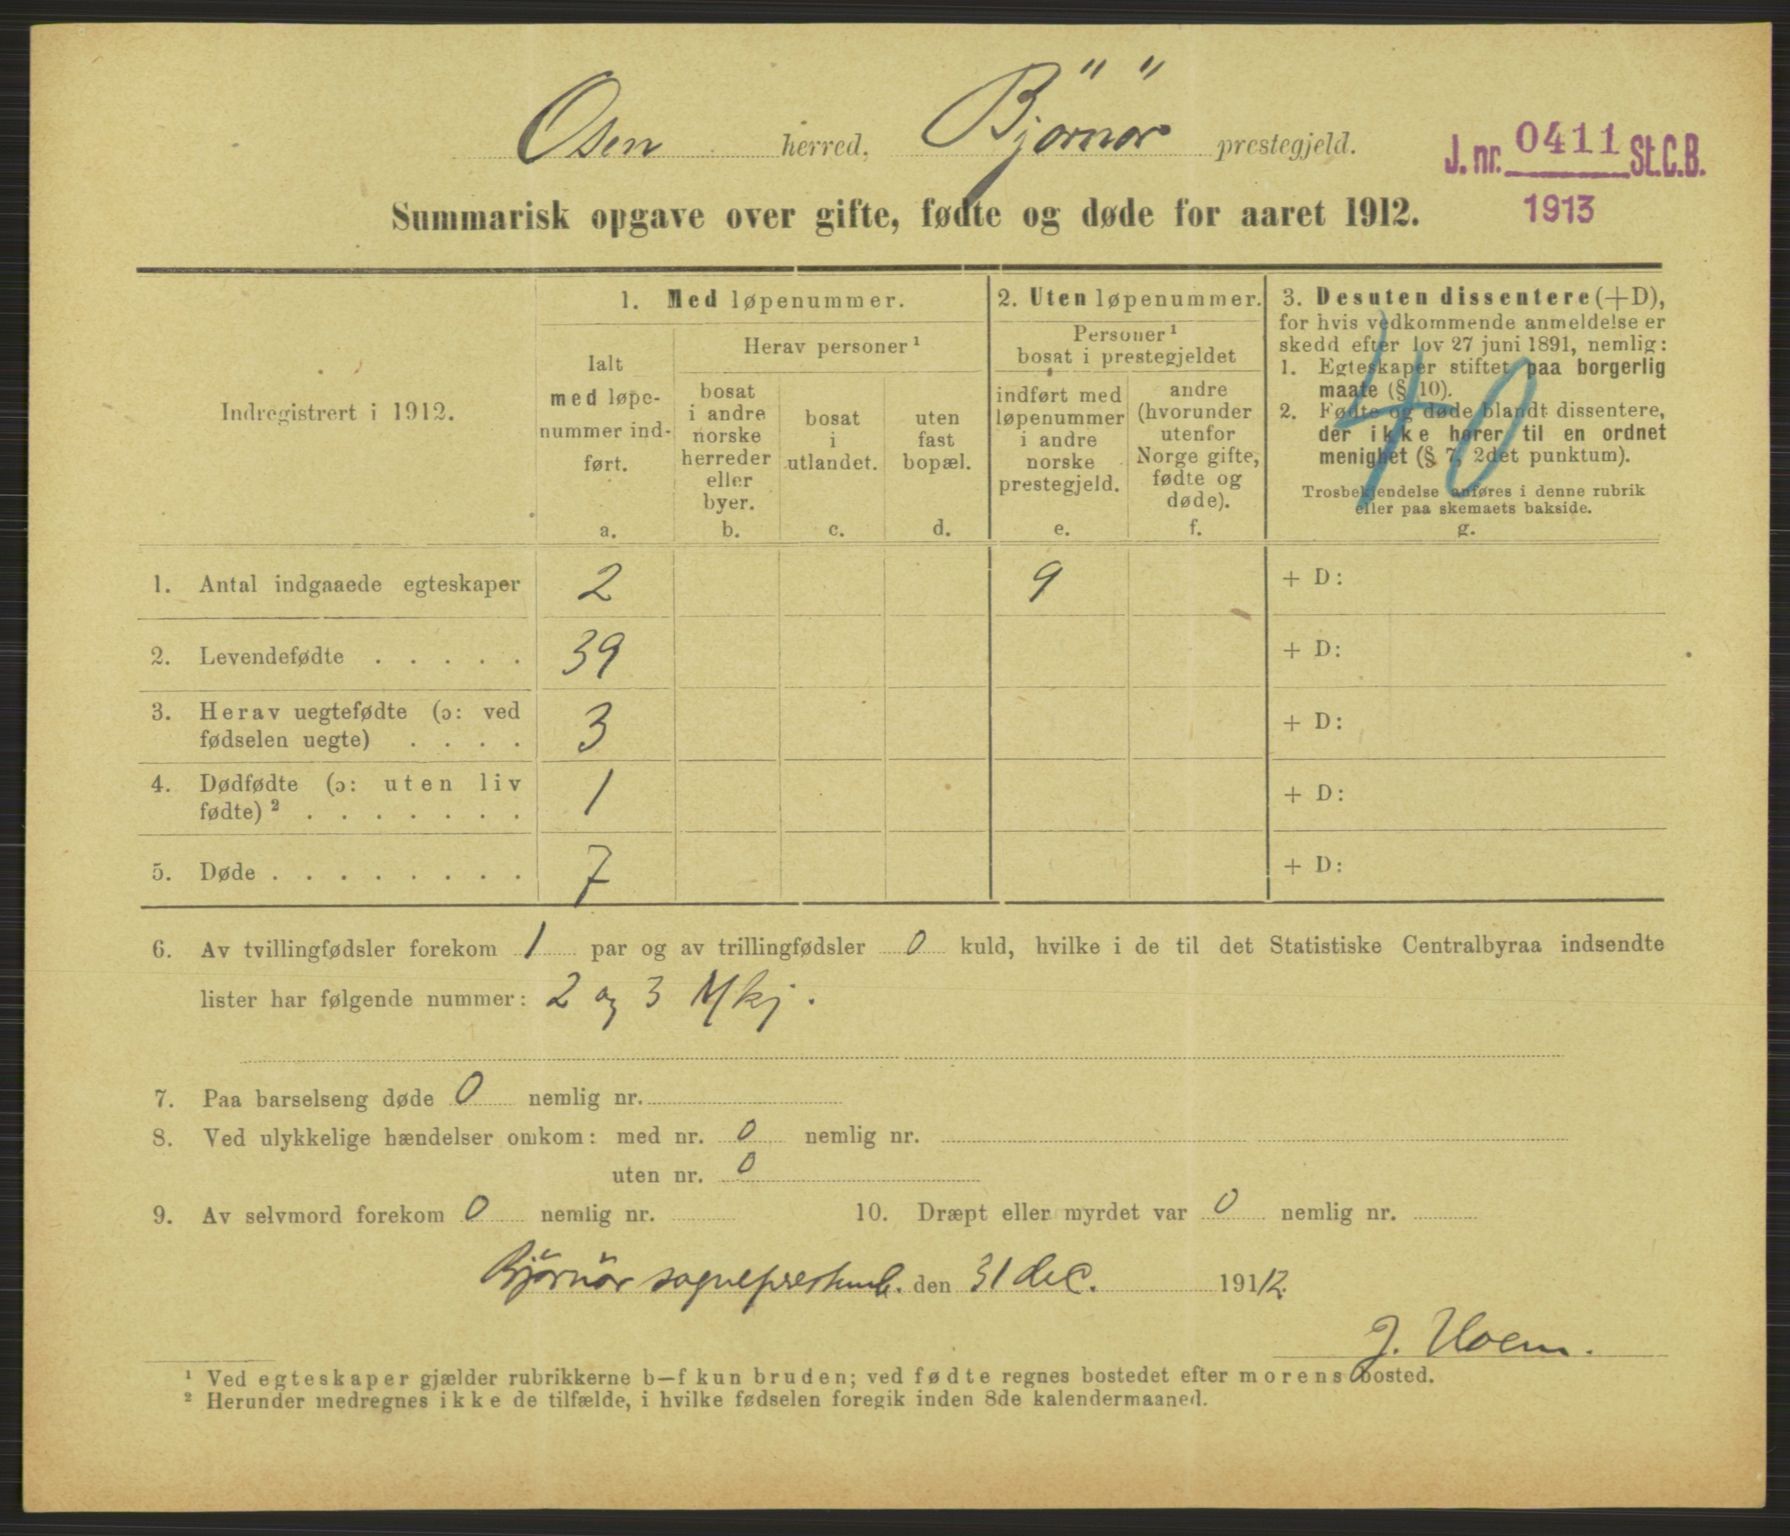 Osen herred, Björnör prestegjeld.
J. nr. 0411 St.C.B.
1913
Summarisk opgave over gifte, fødte og døde for aaret 1912.
Indregistrert i 1912.
1. Med løpenummer.
Ialt
med løpe-
nummer ind-
ført.
a.
Herav personer ¹
bosat
i andre
norske
herreder
eller
byer.
b.
bosat
i
utlandet.
c.
uten
fast
bopæl.
d.
2. Uten løpenummer.
Personer ¹
bosat i prestegjeldet
indført med
løpenummer
i andre
norske
prestegjeld.
e.
andre
(hvorunder
utenfor
Norge gifte,
fødte og
døde).
f.
3. Desuten dissentere (+D),
for hvis vedkommende anmeldelse er
skedd efter lov 27 juni 1891, nemlig:
1. Egteskaper stiftet paa borgerlig
maate (§ 10).
2. Fødte og døde blandt dissentere,
der ikke hører til en ordnet
menighet (§ 7, 2det punktum).
Trosbekjendelse anføres i denne rubrik
eller paa skemaets bakside.
g.
70
1. Antal indgaaede egteskaper 2 9 + D:
2. Levendefødte . . . . . 39 + D:
3. Herav uegtefødte (ɔ: ved
fødselen uegte) . . . . 3 + D:
4. Dødfødte (ɔ: uten liv
fødte) ² . . . . . . . 1 + D:
5. Døde . . . . . . . . 7 + D:
6. Av tvillingfødsler forekom 1 par og av trillingfødsler 0 kuld, hvilke i de til det Statistiske Centralbyraa indsendte
lister har følgende nummer: 2 og 3 Mkj.
7. Paa barselseng døde 0 nemlig nr.
8. Ved ulykkelige hændelser omkom: med nr. 0 nemlig nr.
uten nr. 0
9. Av selvmord forekom 0 nemlig nr. 10. Dræpt eller myrdet var 0 nemlig nr.
Björnör sogneprestemb. den 31 dec. 1912.
J. Hoem.
¹ Ved egteskaper gjælder rubrikkerne b—f kun bruden; ved fødte regnes bostedet efter morens bosted.
² Herunder medregnes ikke de tilfælde, i hvilke fødselen foregik inden 8de kalendermaaned.